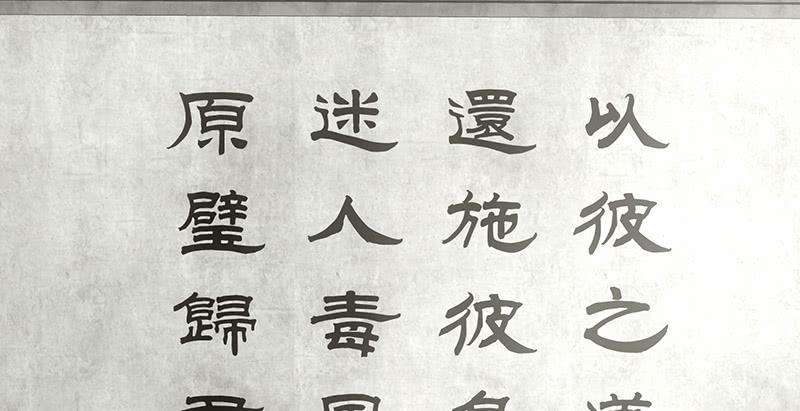 以彼之道
還施彼身
迷人毒
原璧歸